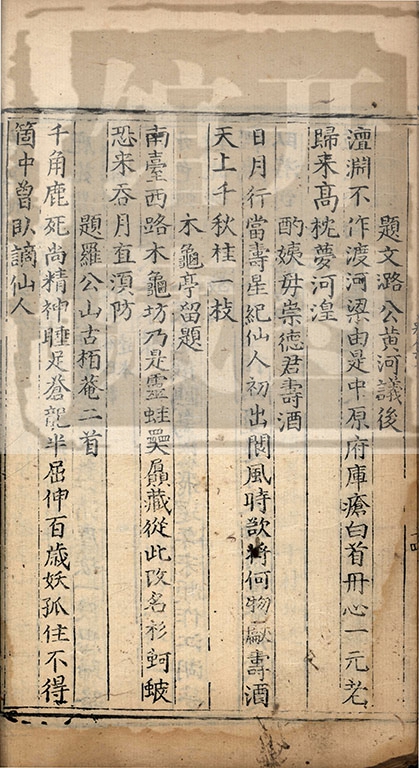 題文潞公黃河議後
澶淵不作渡河梁由是中原府庫瘡白首丹心一元老
歸来髙枕夢河湟
酌姨母崇德君壽酒
日月行當壽星紀仙人初出閬風時欲將何物獻壽酒
天上千秋桂一枝
木龜亭留題
南臺西路木龜坊乃是靈蛙奰贔藏從此改名衫蚵蚾
恐来吞月直湏防
題羅公山古栢菴二首
千角鹿死尚精神睡足蒼龍半屈伸百歲妖狐住不得
箇中曾臥謫仙人